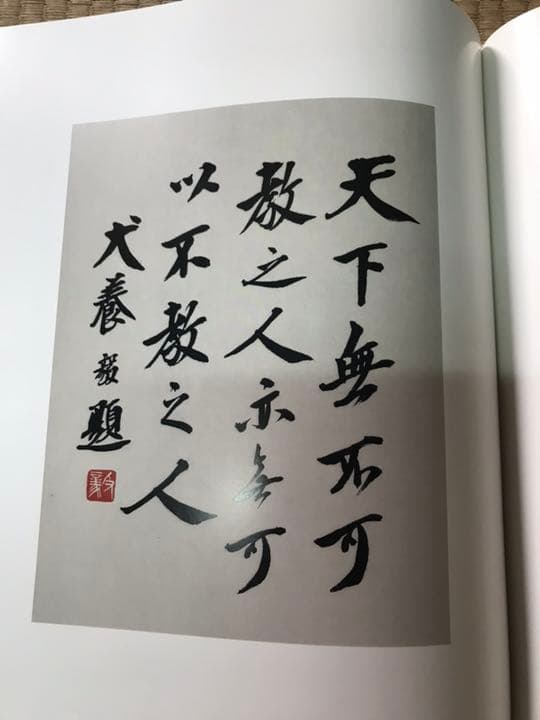 天下無不可
教之人亦無可
以不教之人
犬養毅題
毅